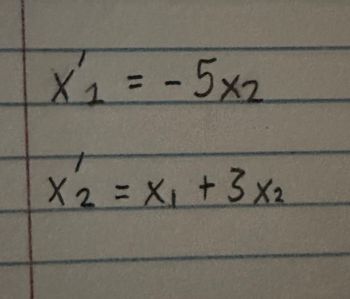 x'₁ = -5x₂
x'₂ = x₁ + 3x₂